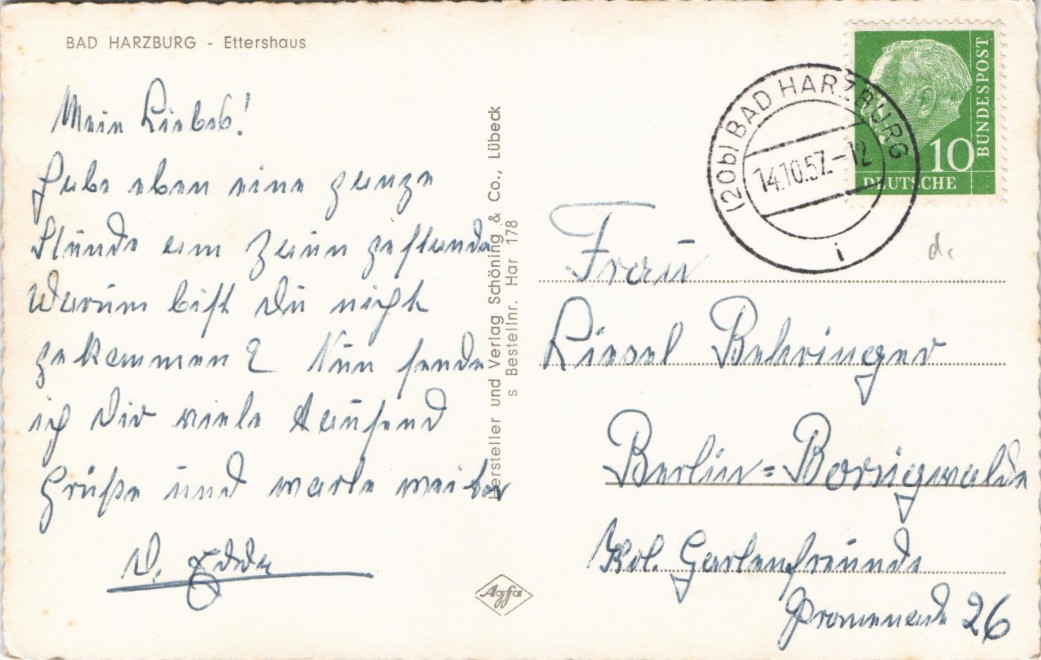 BAD HARZBURG - Ettershaus
Mein Liebes!
Habe eben eine ganze
Stunde am Zaun gestanden
Warum bist Du nicht
gekommen? Nun sende
ich Dir viele tausend
Grüße und warte weiter
D. Edda
Hersteller und Verlag Schöning & Co., Lübeck
s Bestellnr. Har 178
Agfa
(20b) BAD HARZBURG
14.10.57.-12
i
10
DEUTSCHE
BUNDESPOST
Frau
Liesel Behringer
Berlin=Borsigwalde
Kol. Gartenfreunde
Promenade 26